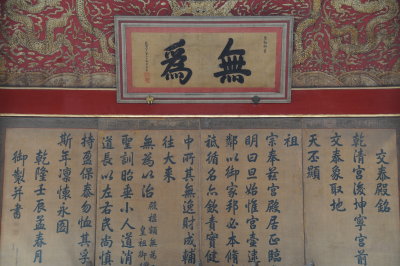 無為
交泰殿銘
乾清宮後坤寧宮前
交泰象取地
天丕顯
祖
宗奉茲宮殿居正臨
明曰旦始惟宮壼
鄰以御家邦必本脩
祗循名
中所其無逸財成輔
往大來
無為以治殿額無為皇祖御
聖訓昭垂小人道消
道長以左右民尚慎
持盈保泰勿恤其孚
斯年凜懷永圖
乾隆壬辰孟春月
御製并書